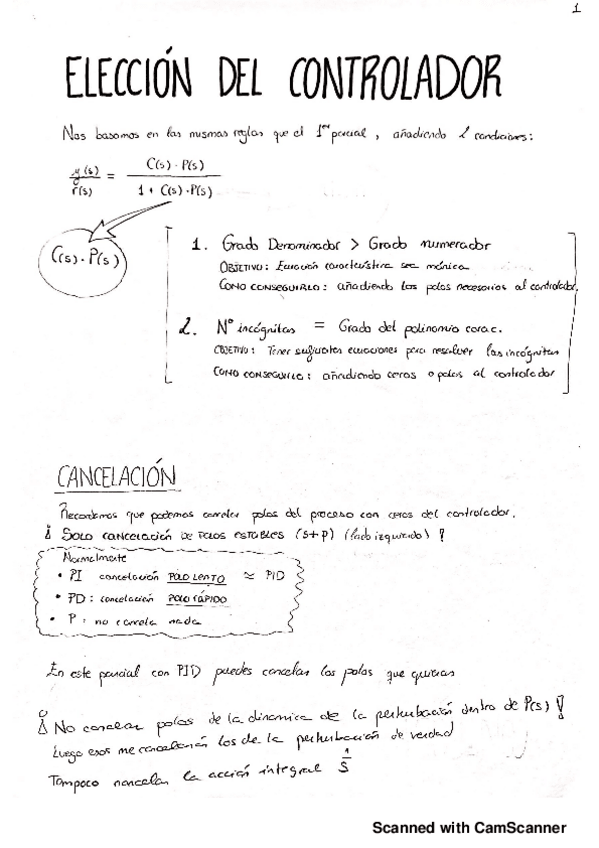 1
ELECCIÓN DEL CONTROLADOR
Nos basamos en las mismas reglas que el 1er parcial, añadiendo 2 condiciones:
y(s) / r(s) = C(s)·P(s) / 1 + C(s)·P(s)
C(s)·P(s)
1. Grado Denominador > Grado numerador
OBJETIVO: Ecuación característica sea mónica
COMO CONSEGUIRLO: añadiendo los polos necesarios al controlador
2. Nº incógnitas = Grado del polinomio carac.
OBJETIVO: Tener suficientes ecuaciones para resolver las incógnitas
COMO CONSEGUIRLO: añadiendo ceros o polos al controlador
CANCELACIÓN
Recordemos que podemos cancelar polos del proceso con ceros del controlador.
¡ SOLO CANCELACIÓN DE POLOS ESTABLES (s+p) (lado izquierdo) !
Normalmente
• PI cancelación POLO LENTO ≈ PID
• PD: cancelación POLO RÁPIDO
• P: no cancela nada
En este parcial con PID puedes cancelar los polos que quieras
¡ No cancelar polos de la dinamica de la perturbación dentro de P(s) !
Luego esos me cancelarán los de la perturbación de verdad
Tampoco cancelan la acción integral 1/s
Scanned with CamScanner